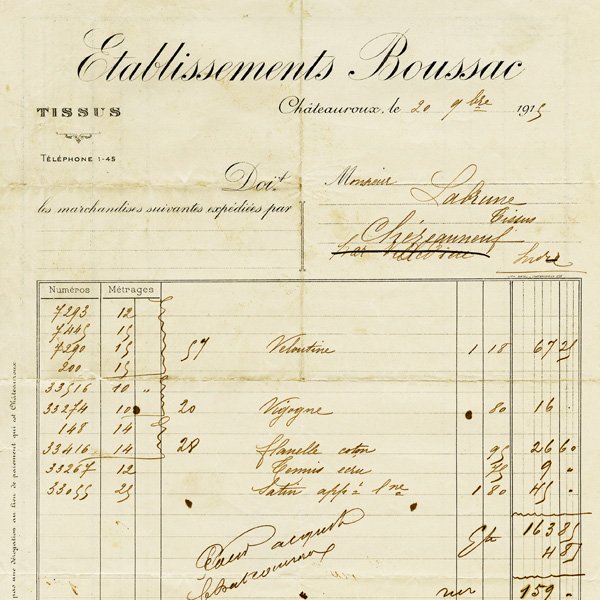 Etablissements Boussac
TISSUS
Châteauroux, le 20 9bre 1915
TÉLÉPHONE 1-45
Doit
Monsieur Labrune
les marchandises suivantes expédiées par
Tissus
Chézeauneuf
par Villedieu
Indre
Numéros Métrages
7293 12
7445 15
7290 15 57 Veloutine 1 18 67 25
200 15
33516 10 "
33274 10 20 Vigogne 80 16 "
148 14
33416 14 28 flanelle coton 95 26 60
33267 12 Tennis écru 75 9 "
33055 25 Satin app 1 80 45 "
163 85
Pour acquit 4 85
Châteauroux
159 "
pas une dérogation au lieu de paiement qui est Châteauroux